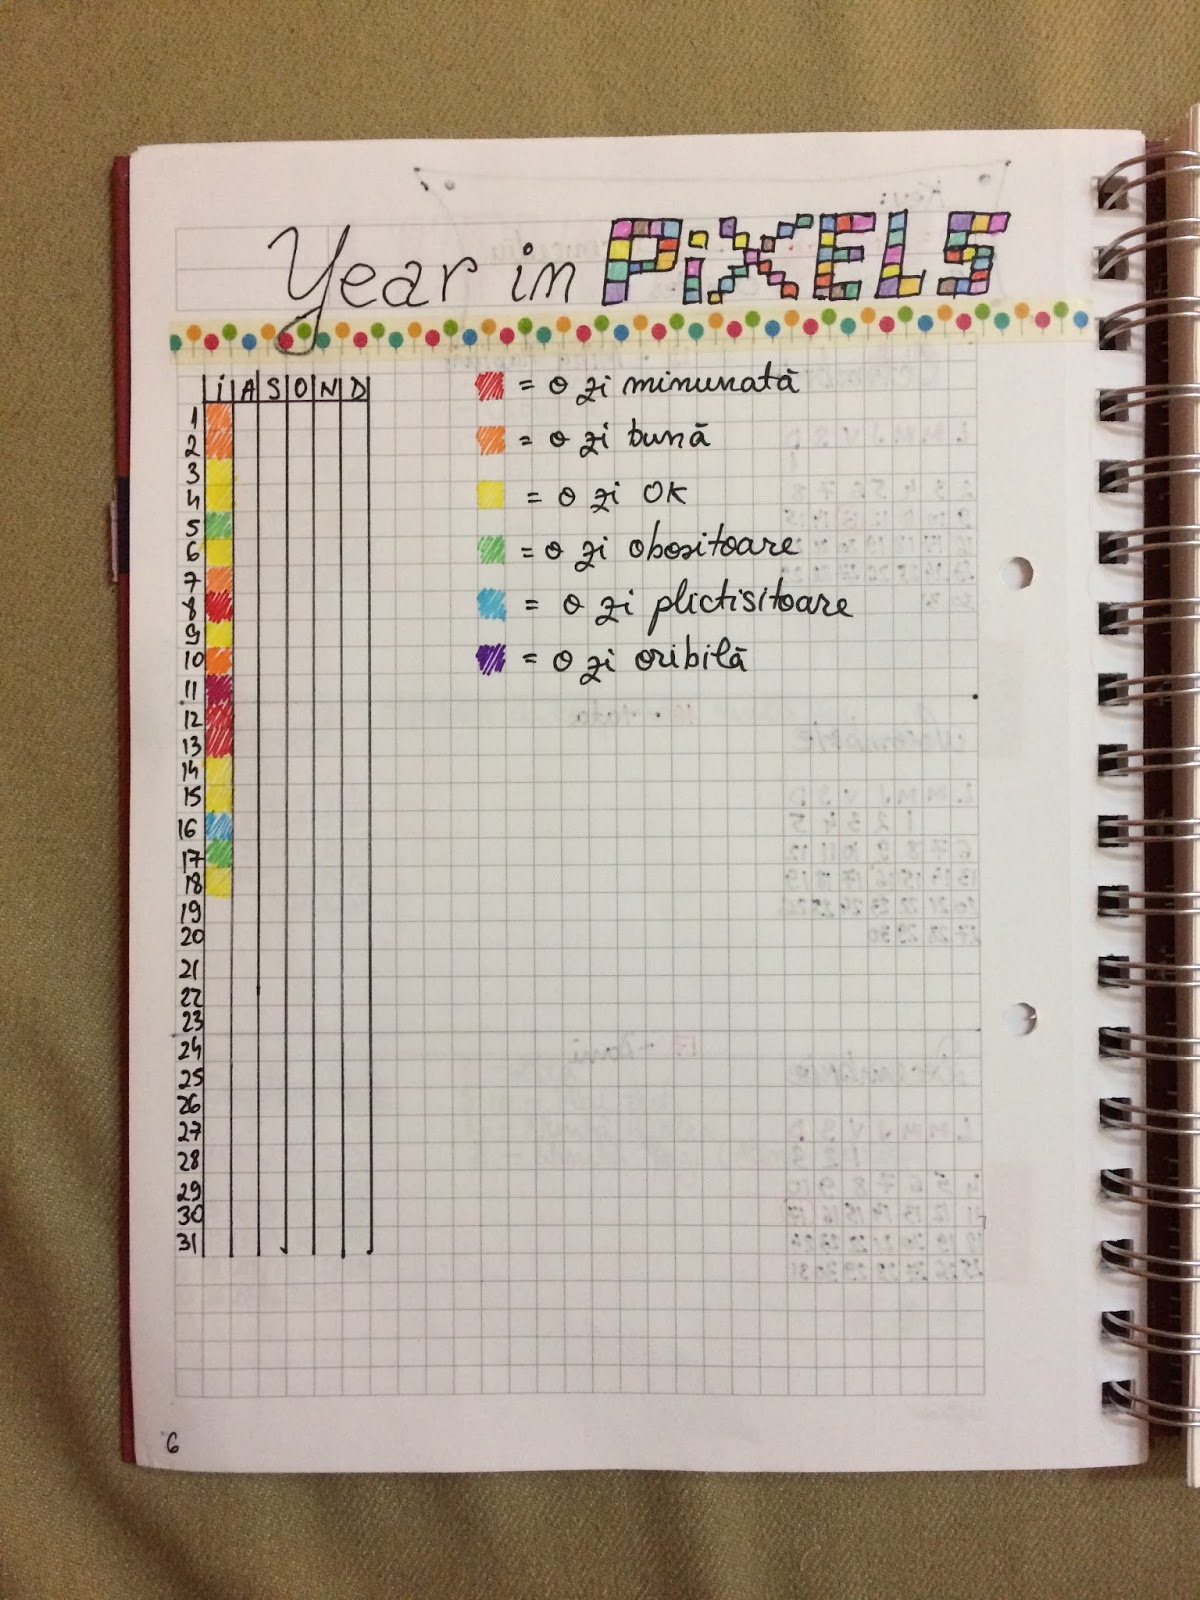 Year in PiXELS
i A S O N D
= o zi minunată
= o zi bună
= o zi OK
= o zi obositoare
= o zi plictisitoare
= o zi oribilă
1
2
3
4
5
6
7
8
9
10
11
12
13
14
15
16
17
18
19
20
21
22
23
24
25
26
27
28
29
30
31
6